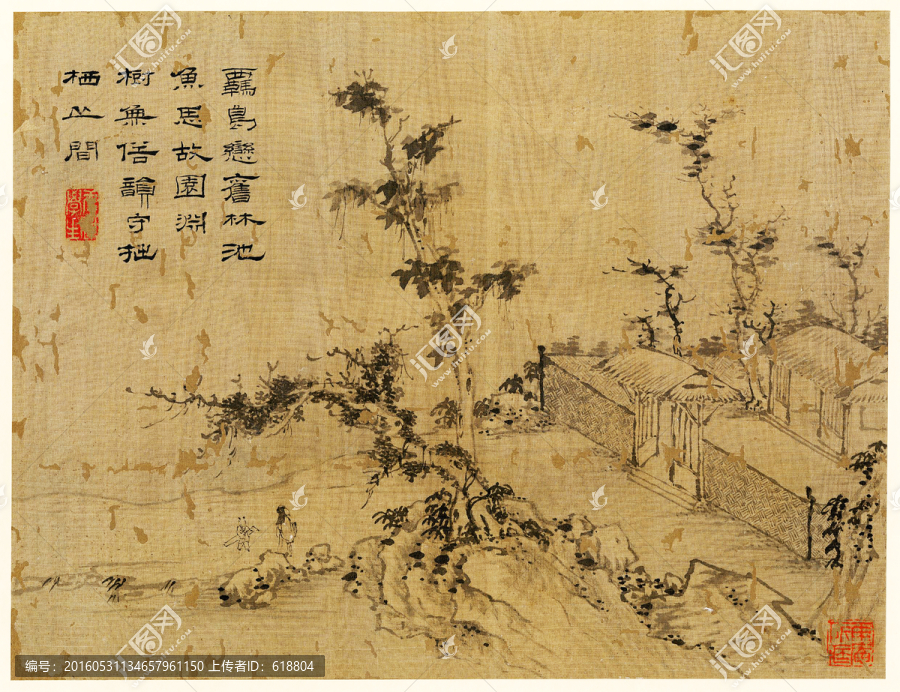 羈鳥戀舊林池
魚思故園淵
樹無俗韻守拙
栖丘間
汇图网
www.huitu.com
编号:20160531134657961150 上传者ID:618804